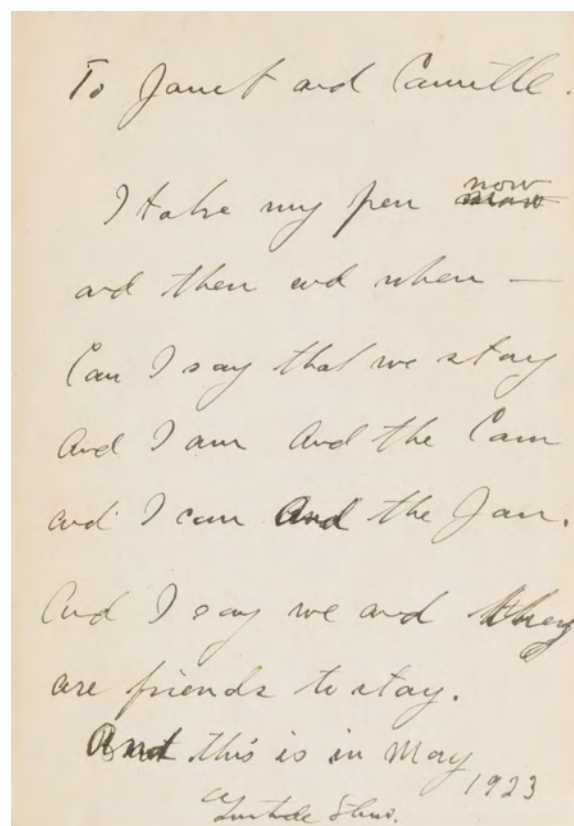 To Janet and Camille.
I take my pen now
and then and when —
Can I say that we stay
And I am And the Cam
and I can And the Jan.
And I say we and they
are friends to stay.
And this is in May
1923
Gertrude Stein.